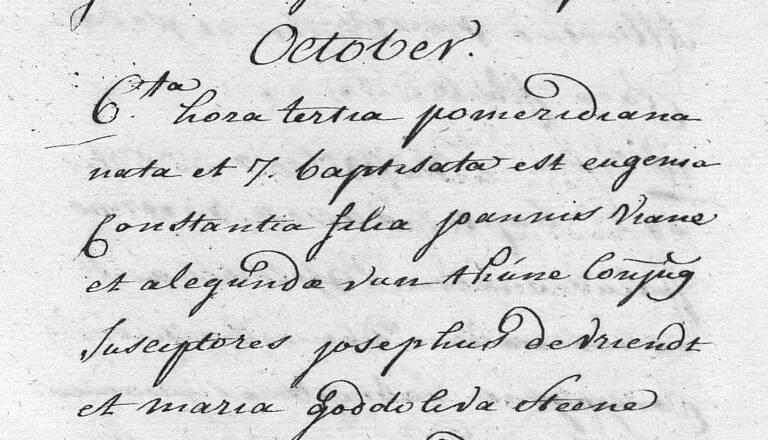 October.
6.ta hora tertia pomeridiana
nata et 7. baptisata est eugenia
Constantia filia joannis Vrane
et alegundæ van thúne Conjug
Susceptores josephus de Vriendt
et maria goddoliva Steene